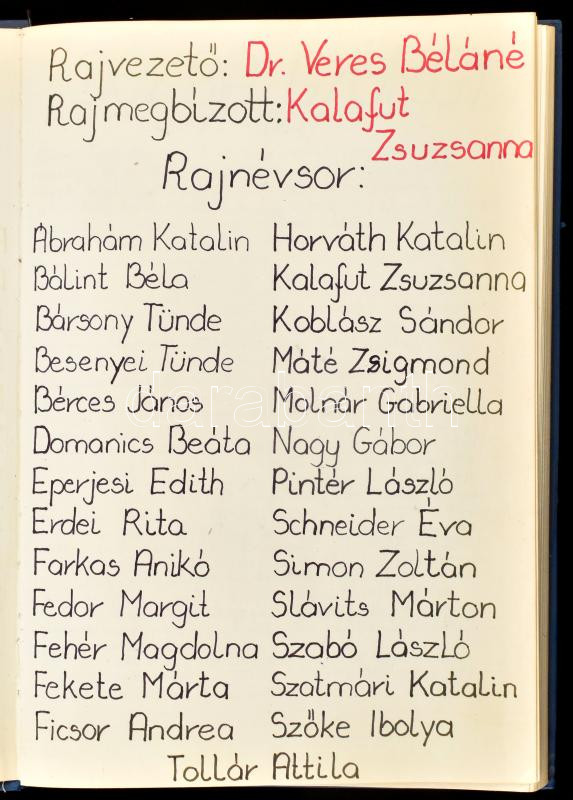 Rajvezető: Dr. Veres Béláné
Rajmegbízott: Kalafut
Zsuzsanna
Rajnévsor:
Ábrahám Katalin
Bálint Béla
Bársony Tünde
Besenyei Tünde
Bérces János
Domanics Beáta
Eperjesi Edith
Erdei Rita
Farkas Anikó
Fedor Margit
Fehér Magdolna
Fekete Márta
Ficsor Andrea
Horváth Katalin
Kalafut Zsuzsanna
Koblász Sándor
Máté Zsigmond
Molnár Gabriella
Nagy Gábor
Pintér László
Schneider Éva
Simon Zoltán
Slávits Márton
Szabó László
Szatmári Katalin
Szőke Ibolya
Tollár Attila
darabanth